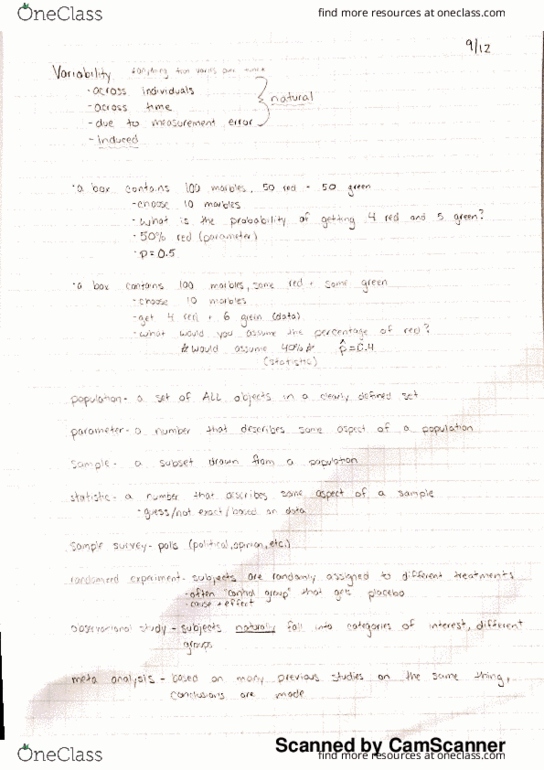 OneClass
find more resources at oneclass.com
9/12
Variability
- across individuals
- across time
- due to measurement error
- induced
natural
• a box contains 100 marbles, 50 red + 50 green
- choose 10 marbles
- what is the probability of getting 4 red and 5 green?
- 50% red (parameter)
• p=0.5
• a box contains 100 marbles, some red + some green
- choose 10 marbles
- get 4 red + 6 green (data)
- what would you assume the percentage of red?
would assume 40% p̂=0.4
(statistic)
population- a set of ALL objects in a clearly defined set
parameter- a number that describes some aspect of a population
sample- a subset drawn from a population
statistic- a number that describes some aspect of a sample
- guess/not exact/based on data
sample survey- polls (political, opinion, etc.)
randomized experiment- subjects are randomly assigned to different treatments
- often "control group" that gets placebo
- cause + effect
observational study - subjects naturally fall into categories of interest, different
groups
meta analysis - based on many previous studies on the same thing,
conclusions are made
Scanned by CamScanner
OneClass
find more resources at oneclass.com